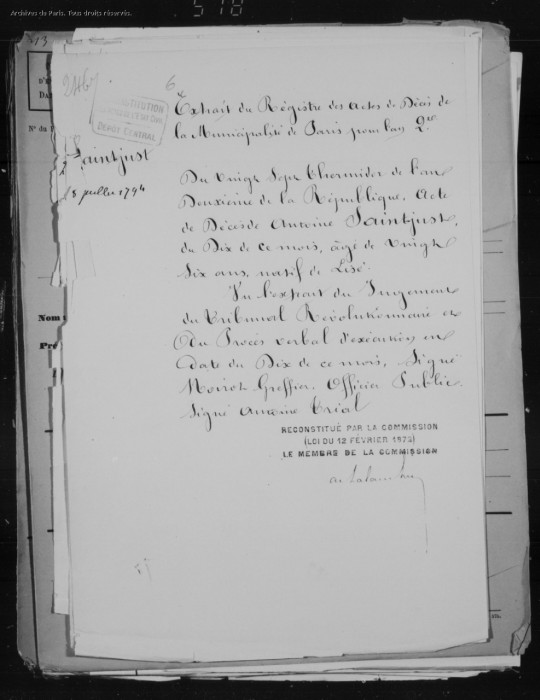 Archives de Paris. Tous droits réservés.
518
6
Extrait du Régistre des Actes de Décès de
la Municipalité de Paris pour l'an 2e
DEPOT CENTRAL
Saintjust
juillet 1794
Du Vingt Sept Thermidor de l'an
Deuxième de la République. Acte
de Décès de Antoine Saintjust,
du Dix de ce mois, âgé de Vingt
Six ans, natif de Lisé.
Vu l'extrait du Jugement
du Tribunal Révolutionnaire et
du Procès verbal d'exécution en
date du Dix de ce mois, Signé
Neirot Greffier. Officier Public.
Signé Antoine Trial
RECONSTITUÉ PAR LA COMMISSION
(LOI DU 12 FÉVRIER 1872)
LE MEMBRE DE LA COMMISSION
N° du
Nom
Pré